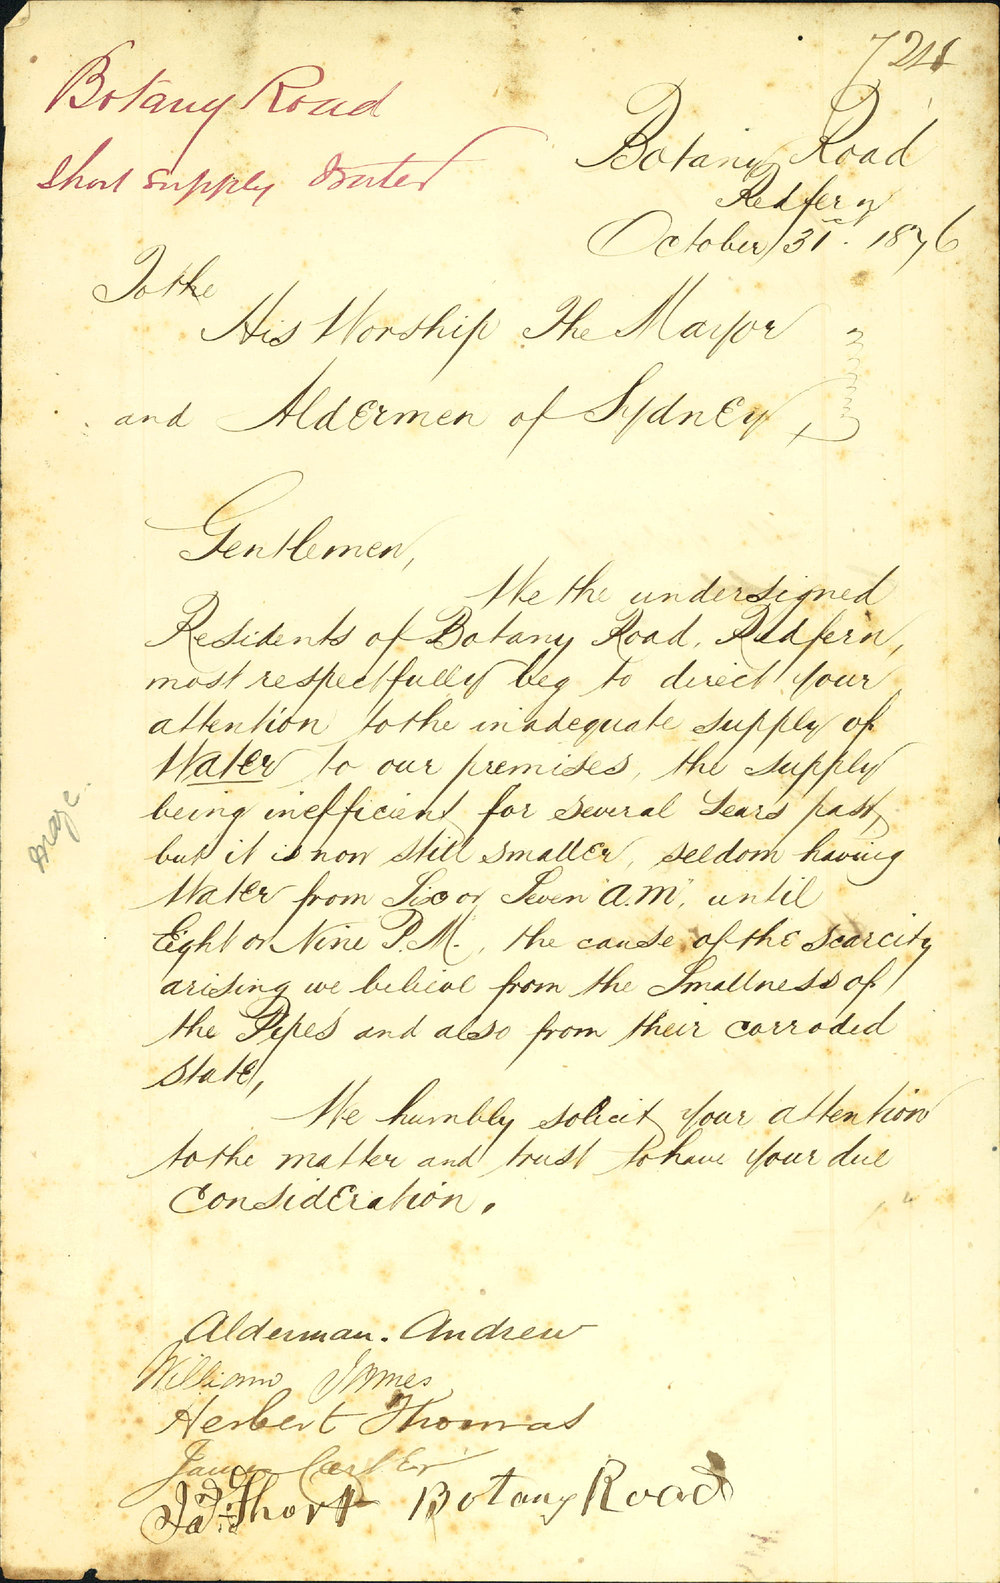 724
Botany Road
Short supply Water
Botany Road
Redfern
October 31st. 1876
To the
His Worship The Mayor
and Aldermen of Sydney,
Gentlemen,
We the undersigned
Residents of Botany Road, Redfern,
most respectfully beg to direct your
attention to the inadequate supply of
Water to our premises, the supply
being inefficient for several years past,
but it is now still smaller, seldom having
Water from Six or Seven "a.m", until
Eight or Nine P.M., the cause of the scarcity
arising we believe from the Smallness of
the Pipes and also from their corroded
state,
We humbly solicit your attention
to the matter and trust to have your due
Consideration.
Alderman. Andrew
William James
Herbert Thomas
James Carter
Short Botany Road